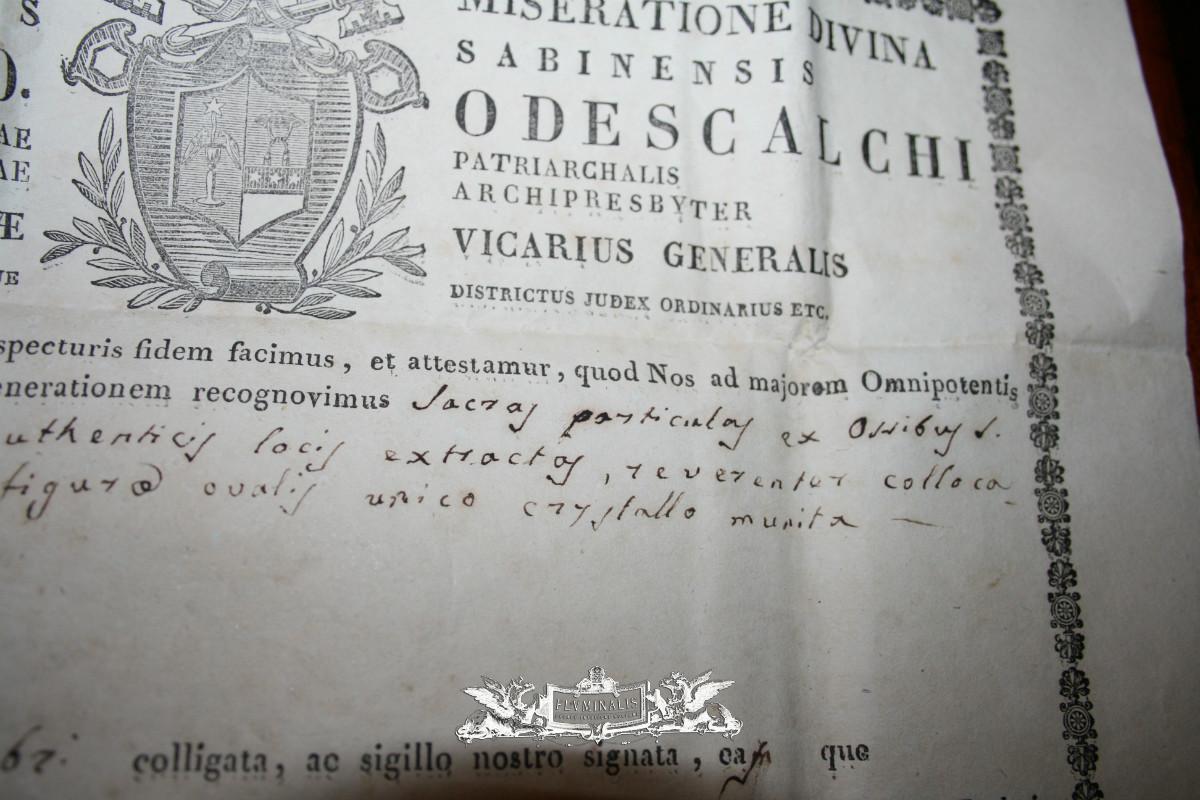 S
MISERATIONE DIVINA
SABINENSIS
O.
ODESCALCHI
AE
PATRIARCHALIS
AE
ARCHIPRESBYTER
Æ
VICARIUS GENERALIS
UE
DISTRICTUS JUDEX ORDINARIUS ETC.
specturis fidem facimus, et attestamur, quod Nos ad majorem Omnipotentis
enerationem recognovimus Sacras particulas ex Ossibus S.
uthenticis locis extractas, reverenter colloca
figuræ ovalis unico crystallo munita —
FLVMINALIS
colligata, ac sigillo nostro signata, eas que